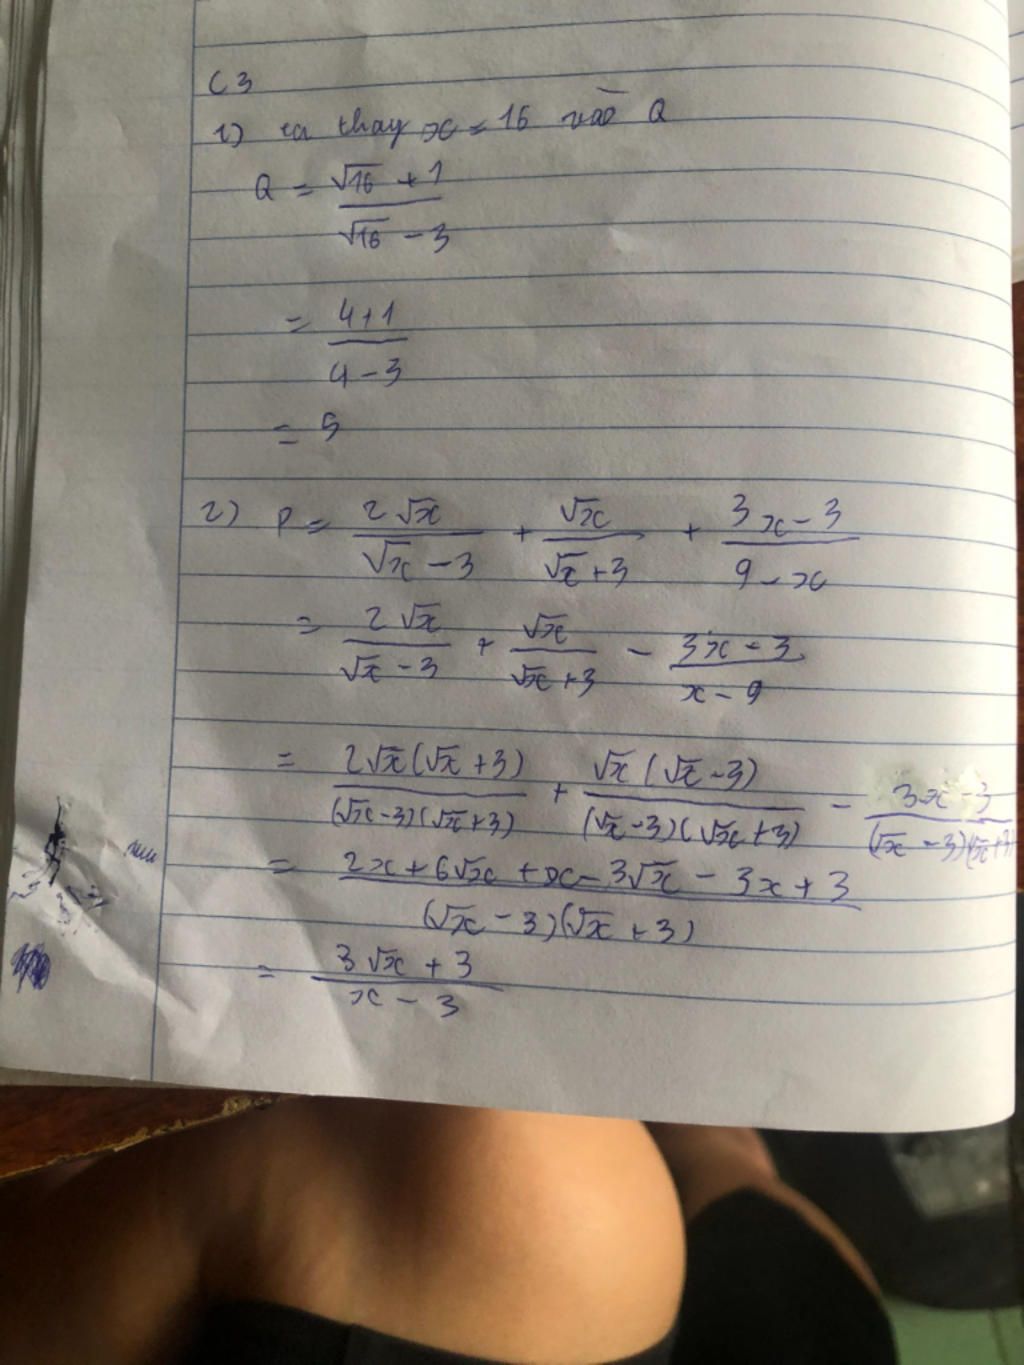 C3
1) ta thay x = 16 vào Q
Q = (√16 + 1)/(√16 - 3)
= (4+1)/(4-3)
= 5
2) P = 2√x/(√x - 3) + √x/(√x + 3) + (3x - 3)/(9 - x)
= 2√x/(√x - 3) + √x/(√x + 3) - (3x - 3)/(x - 9)
= 2√x(√x + 3)/((√x - 3)(√x + 3)) + √x(√x - 3)/((√x - 3)(√x + 3)) - (3x - 3)/((√x - 3)(√x + 3))
= (2x + 6√x + x - 3√x - 3x + 3)/((√x - 3)(√x + 3))
= (3√x + 3)/(x - 3)